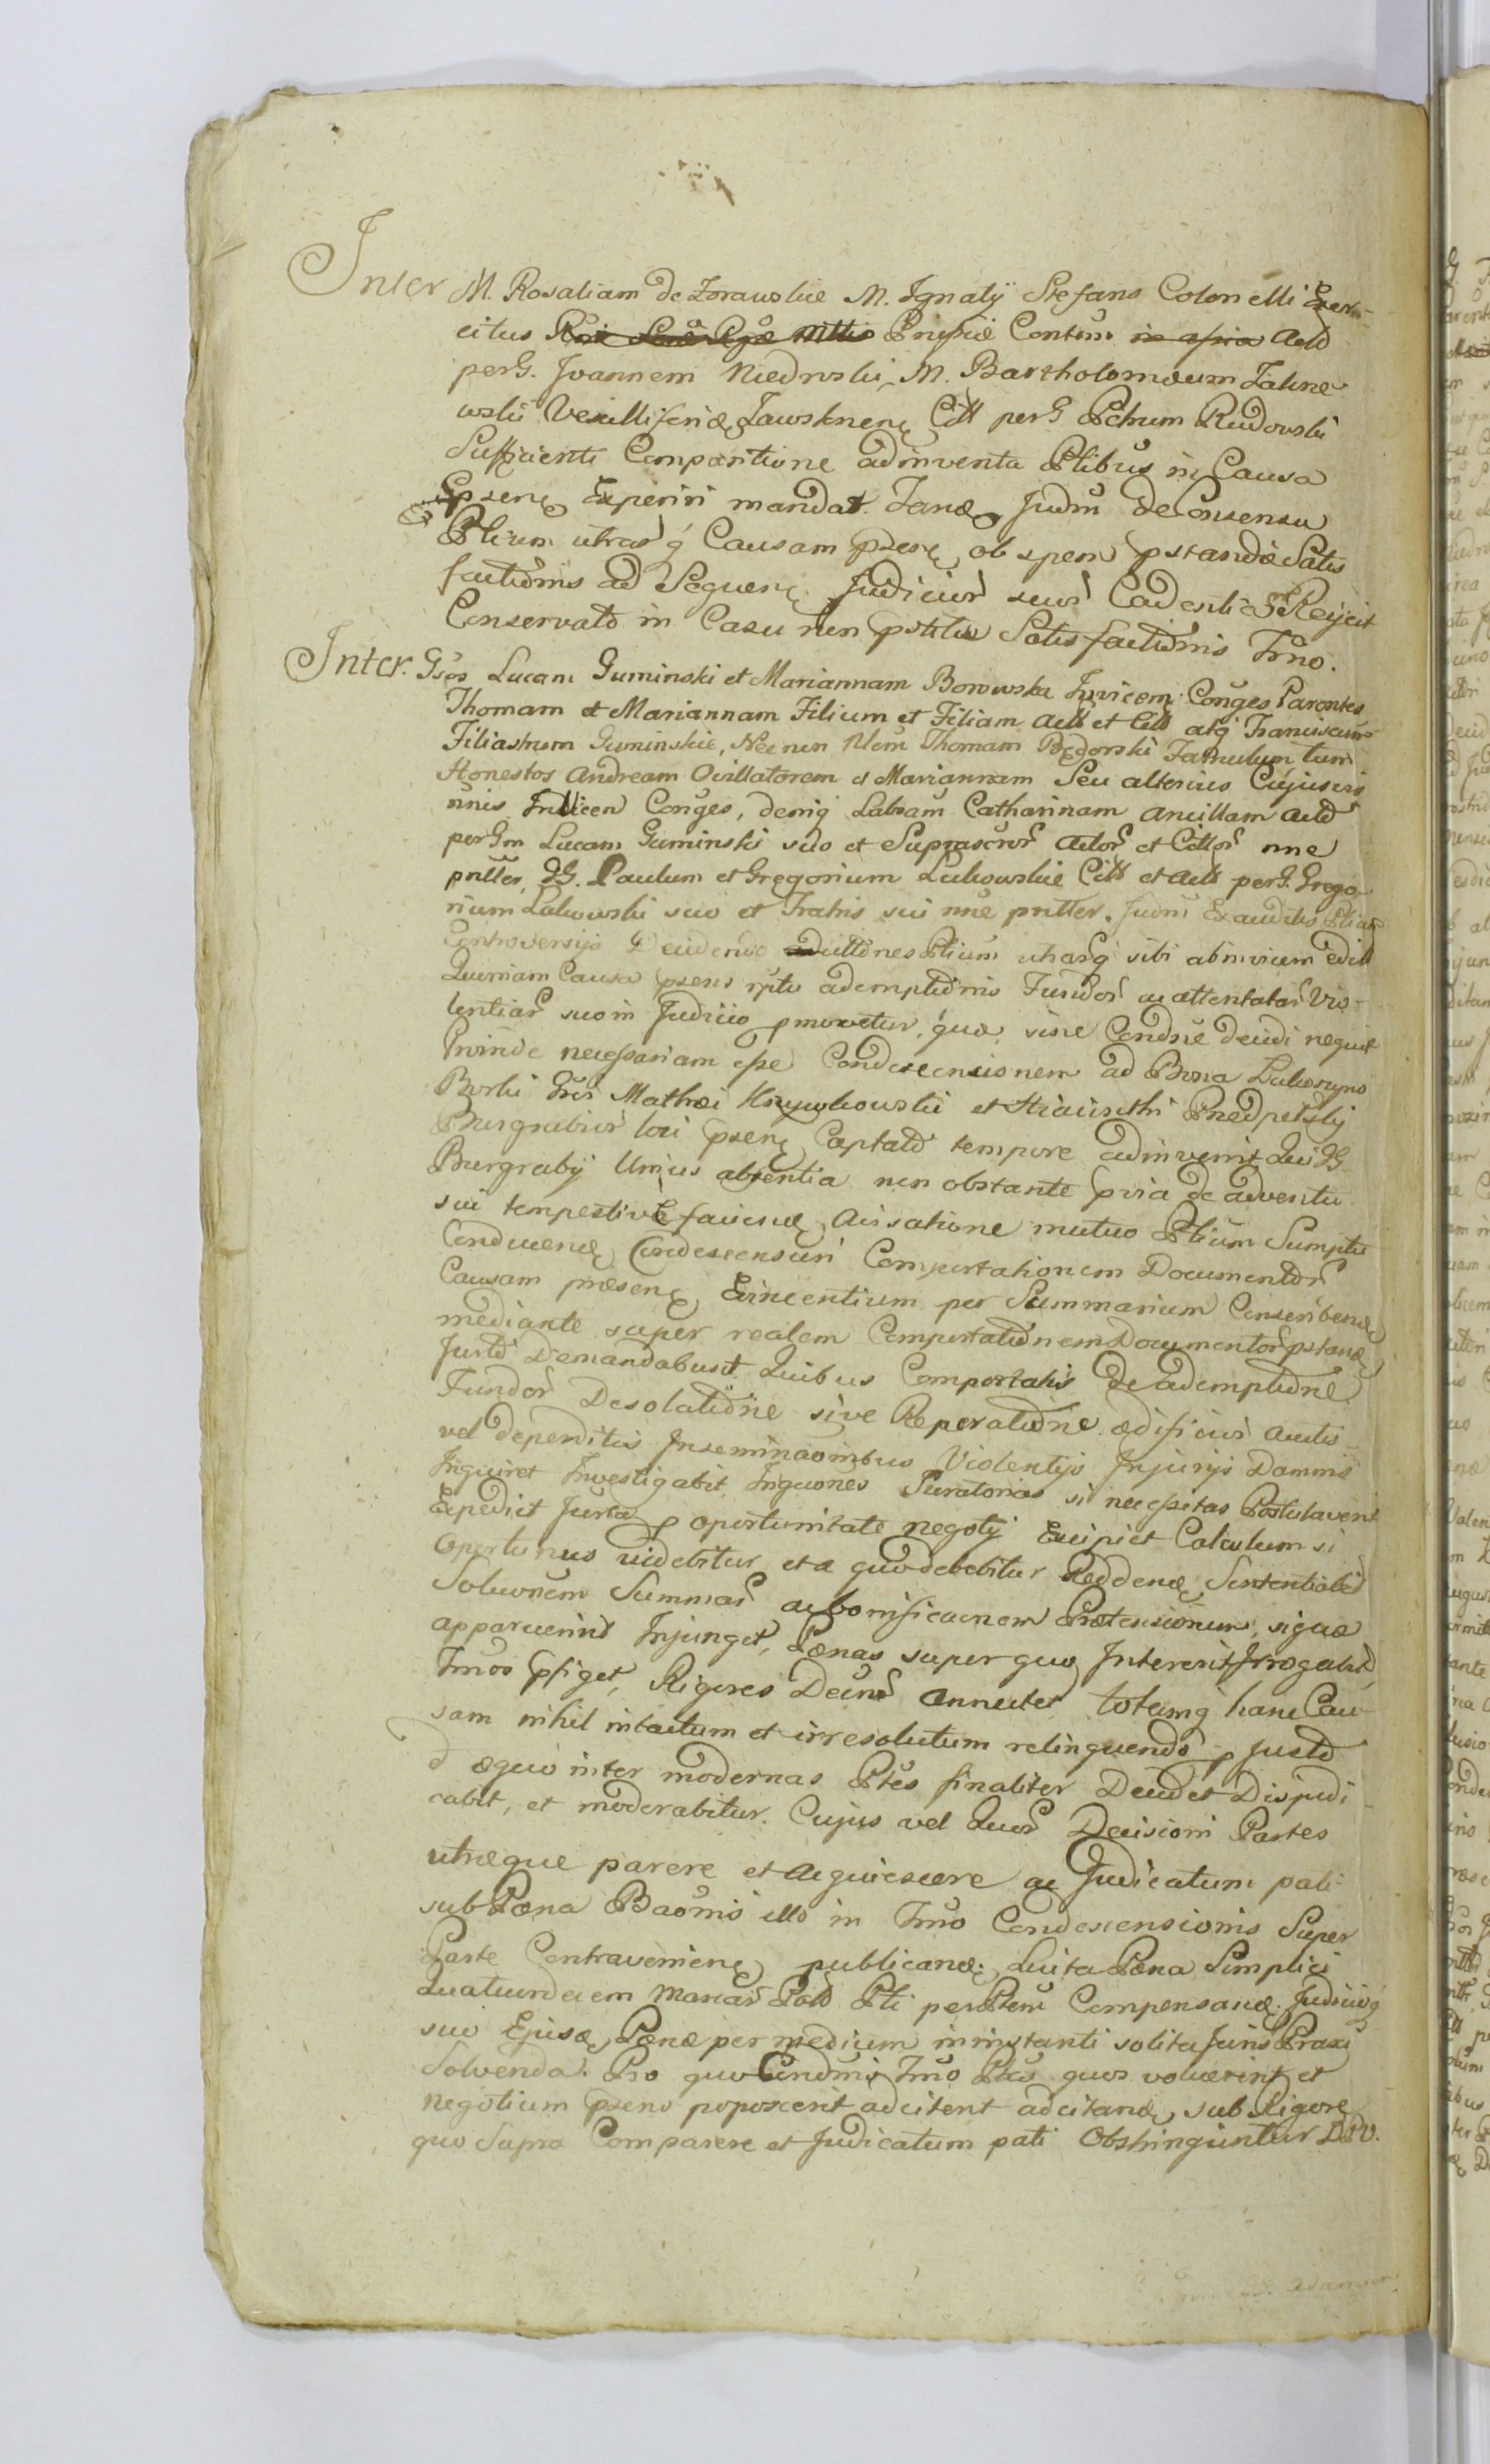 Inter M. Rosaliam de Zorawskie M. Ignatij Stefans Colonelli Exer-
citus Prussiæ Consm in assia Actd
per G. Joannem Niedrwski, M. Bartholomæum Zakrze-
wski Vexilliferiæ Zawsknen Citt per G Petrum Rudowski
Sufficienti Comparitione adinventa Ptibus in Causa
Psen Experiri mandat. Tand Judm de Consensu
Ptium utrasq Causam psen ob spem pstandæ Satis
factiõnis ad Sequen Judicior suor Cadentias Reijcit
Conservato in Casu non pstitæ Satisfactiõnis Trno.
Inter. Gsos Lucam Guminski et Mariannam Borowska Invicem Conges Parentes
Thomam et Mariannam Filium et Filiam Actt et Citt atq Franciscum
Filiastrum Guminskie, Nec non Nlem Thomam Bedorski Famulum tum
Honestos Andream Ovillatorem et Mariannam Seu alterius Cujusvis
nnis Invicem Conges, deniq Labram Catharinam ancillam Actd
per Gm Lucam Guminski suo et Suprascror Actor et Cittor nne
pntter, GG. Paulum et Gregorium Lukowskie Citt et Actt per G. Grego-
rium Lukowski suo et Fratris sui nne pntter. Judm Exauditis Ptium
Controversijs Deciden Ptium utrasq sibi abinvicem edit
Quoniam Causa psens rptu ademptiõnis Fundor ac attentatar Vio-
lentiar suo in Judicio pmovetur, quæ sine Condsne decidi nequit
Proinde necessariam esse Condescensionem ad Bona Lukoszyno
Borki Gsis Mathæi Krzywkowski et Hiacinthi Przedpelski
Burgrabior loci psen Captato tempore adinvenit Qui GG.
Burgrabij Unius absentia non obstante pvia de adventu
sui tempestive faciend Avisatione mutuo Ptium Sumptu
Conducend Condescensuri Comportationem Documentor
Causam præsen Evincentium per Summarium Conscribend
mediante super realem Comportatiõnem Documentor pstand
Jurto Demandabunt Quibus Comportatis de ademptiõne
Fundor Desolatiõne sive Reperatiõne ædificior auctis
vel deperditis Inseminaoinbus Violentijs Injurijs Damnis
Inquiret Investigabit Inquones Juratorias si necessitas Postulaverit
Expediet Jurta p oportunitate negotij Excipiet Calculum si
Oportunus videbitur et a quo debebitur Reddend Sententiabit
Soluonem Summar ac bonificaonem Prætensionum, si quæ
apparuerint Injunget, Pænas super quo Intererit Irrogabit,
Trnos pfiget, Rigores Decrnt Annectet totamq hanc Cau-
sam nihil intactum et irresolutum relinquendo p Justo
æquo inter modernas Ptes finaliter Decidet Dijudi-
cabit, et moderabitur. Cujus vel Quor Decisioni Partes
utræque parere et acquiescere ac Judicatum pati
sub Pæna Baonis illo in Trno Condescensionis Super
Parte Contravenien publicand. Luita Pæna Simplici
Quatuordecem Marcar Pold Pti per Ptem Compensand. Judicioq
suo Ejusd Pænæ per medium in instanti solita Juris Praxi
Solvenda. Pro quo Condnis Trno Ptes quos voluerint et
negotium psens poposcerit adcitent adcitand sub Rigore
quo Supra Comparere et Judicatum pati Obstringuntur D.P.V.